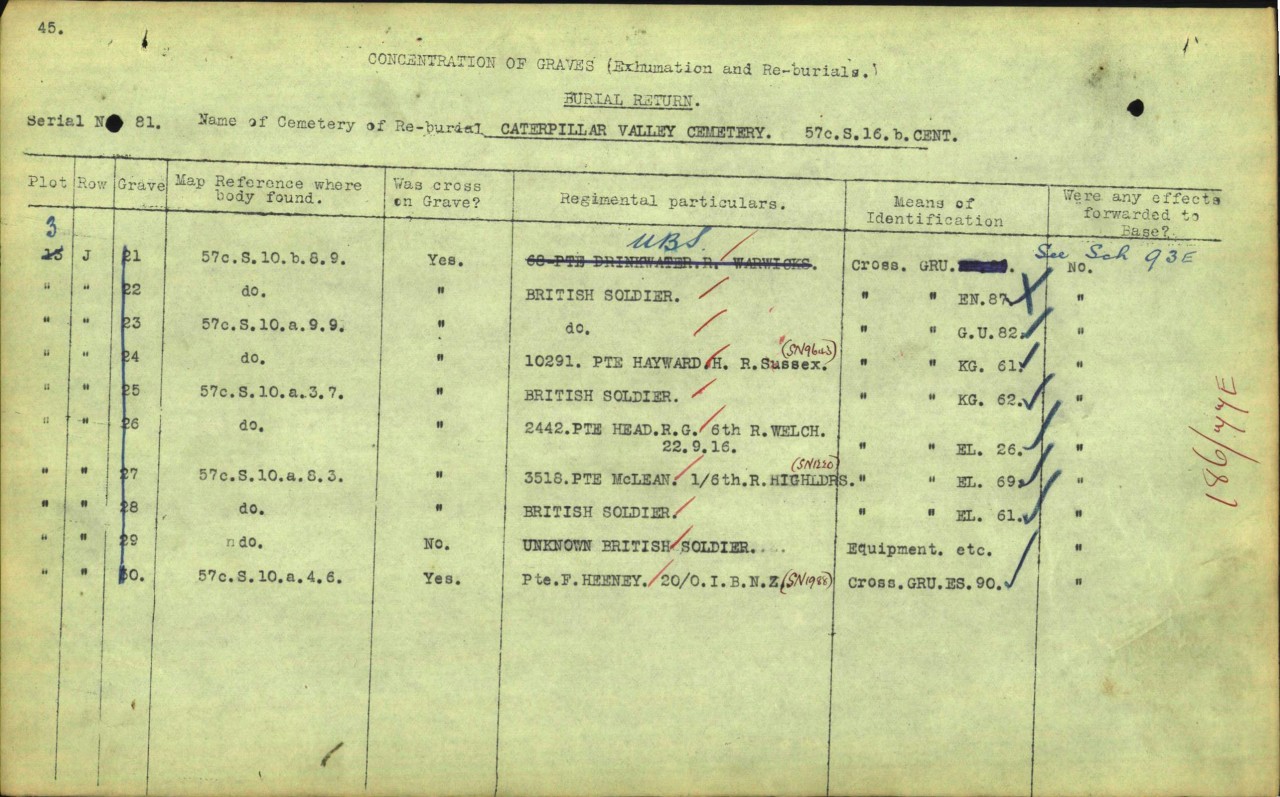 45.
CONCENTRATION OF GRAVES (Exhumation and Re-burials.)
BURIAL RETURN.
Serial No 81. Name of Cemetery of Re-burial CATERPILLAR VALLEY CEMETERY. 57c.S.16.b.CENT.
Plot Row Grave Map Reference where body found. Was cross on Grave? Regimental particulars. Means of Identification Were any effects forwarded to Base?
3 UBS. See Sch 93E
J 21 57c.S.10.b.8.9. Yes. 68 PTE DRINKWATER.R. WARWICKS. Cross. GRU. No.
" " 22 do. " BRITISH SOLDIER. " " EN.87 "
" " 23 57c.S.10.a.9.9. " do. " " G.U.82. "
" " 24 do. " 10291. PTE HAYWARD.H. R.Sussex. " " KG. 61. "
" " 25 57c.S.10.a.3.7. " BRITISH SOLDIER. " " KG. 62. "
" " 26 do. " 2442.PTE HEAD.R.G. 6th R.WELCH. 22.9.16. " " EL. 26. "
" " 27 57c.S.10.a.8.3. " 3518.PTE McLEAN. 1/6th.R.HIGHLDRS. (SN1220) " " EL. 69. "
" " 28 do. " BRITISH SOLDIER. " " EL. 61. "
" " 29 do. No. UNKNOWN BRITISH SOLDIER. Equipment. etc. "
" " 30. 57c.S.10.a.4.6. Yes. Pte.F.HEENEY. 20/O.I.B.N.Z. (SN1988) Cross.GRU.ES.90. "